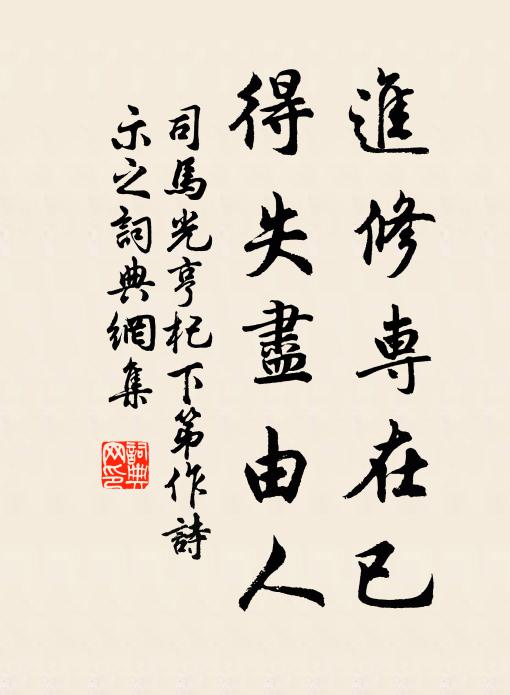 進修専在已
得失盡由人
司馬光亨杞下第作詩
示之詞典網集
詞典網印